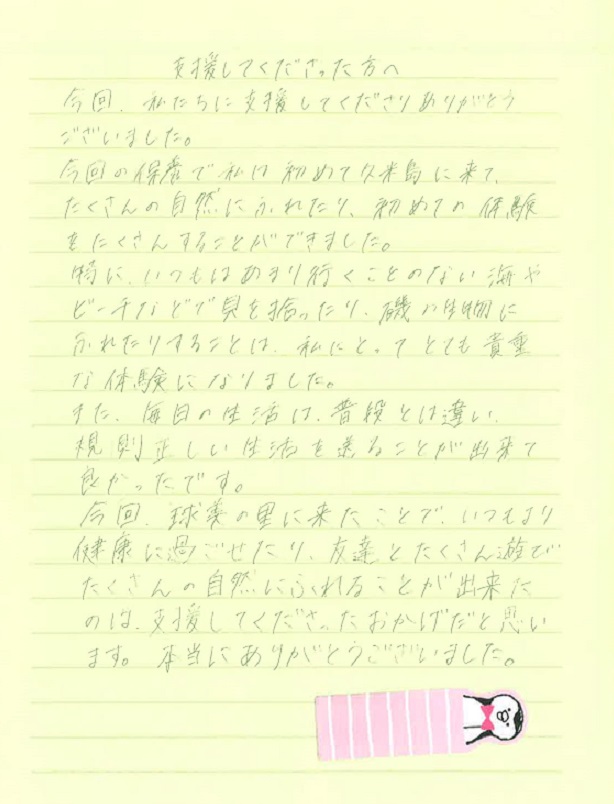 支援してくださった方へ
今回、私たちに支援してくださりありがとう
ございました。
今回の保養で私は初めて久米島に来て、
たくさんの自然にふれたり、初めての体験
をたくさんすることができました。
特に、いつもはあまり行くことのない海や
ビーチなどで貝を拾ったり、磯の生物に
ふれたりすることは、私にとってとても貴重
な体験になりました。
また、毎日の生活は、普段とは違い、
規則正しい生活を送ることが出来て
良かったです。
今回、球美の里に来たことで、いつもより
健康に過ごせたり、友達とたくさん遊び
たくさんの自然にふれることが出来た
のは、支援してくださったおかげだと思い
ます。本当にありがとうございました。